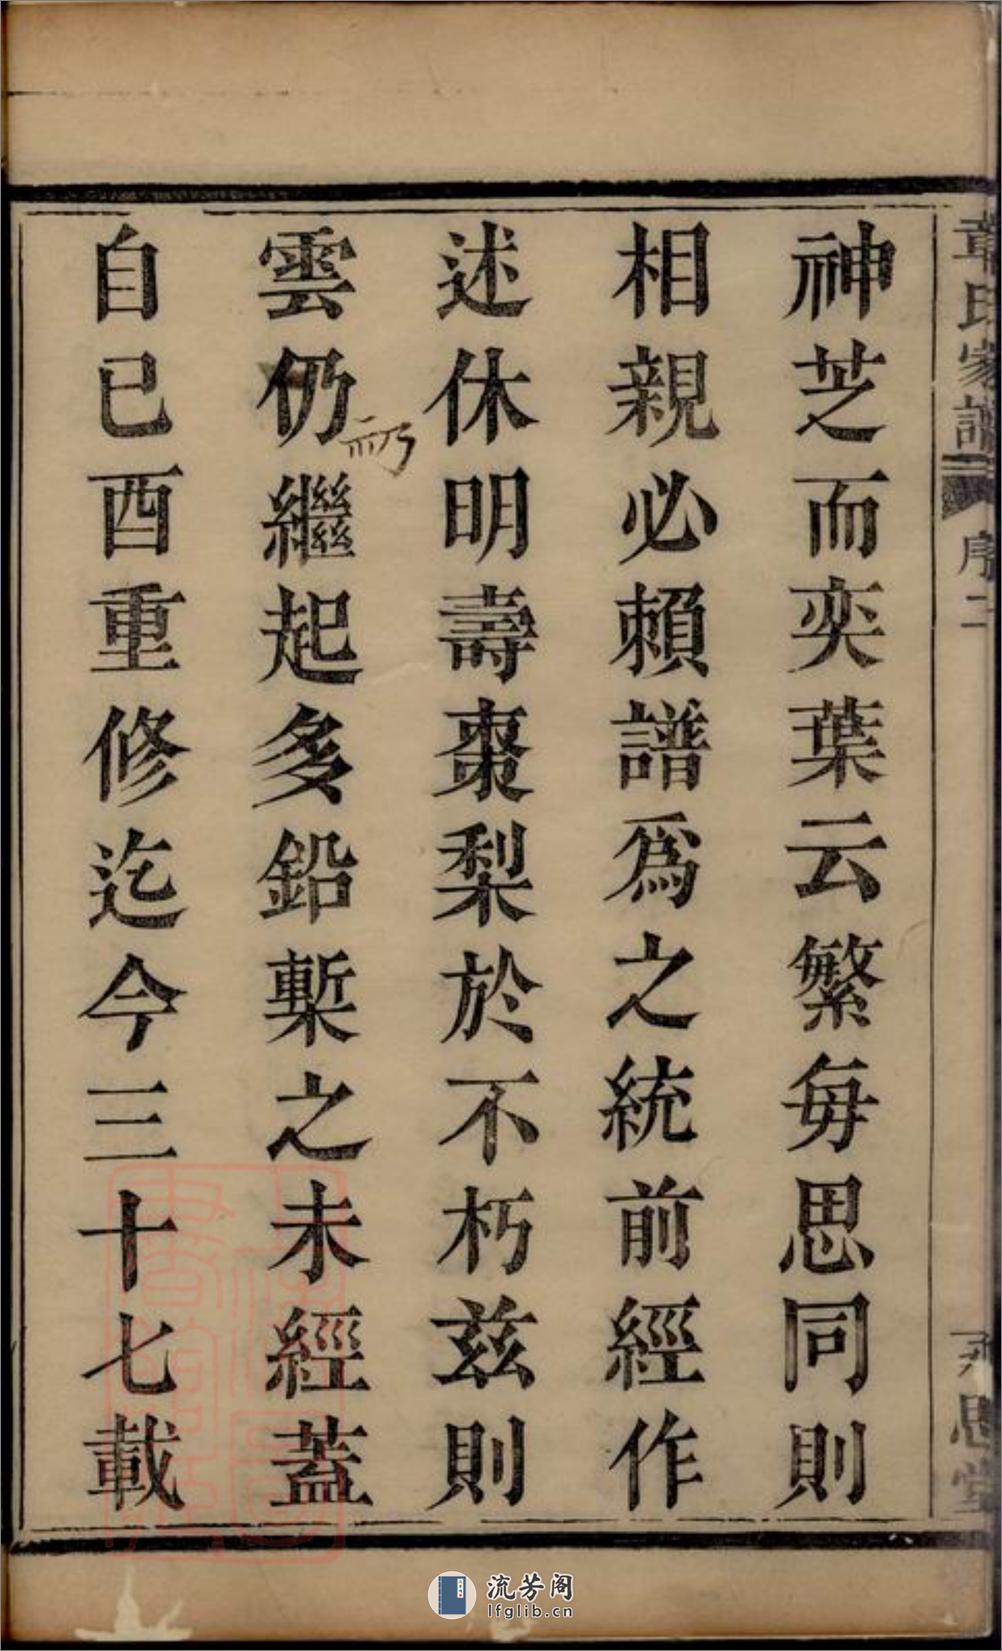 章氏家譜
序二
永思堂
神芝而奕葉云繁每思同則
相親必賴譜爲之統前經作
述休明壽棗梨於不朽茲則
雲仍繼起多鉛槧之未經蓋
自己酉重修迄今三十七載
流芳阁
lfglib.cn